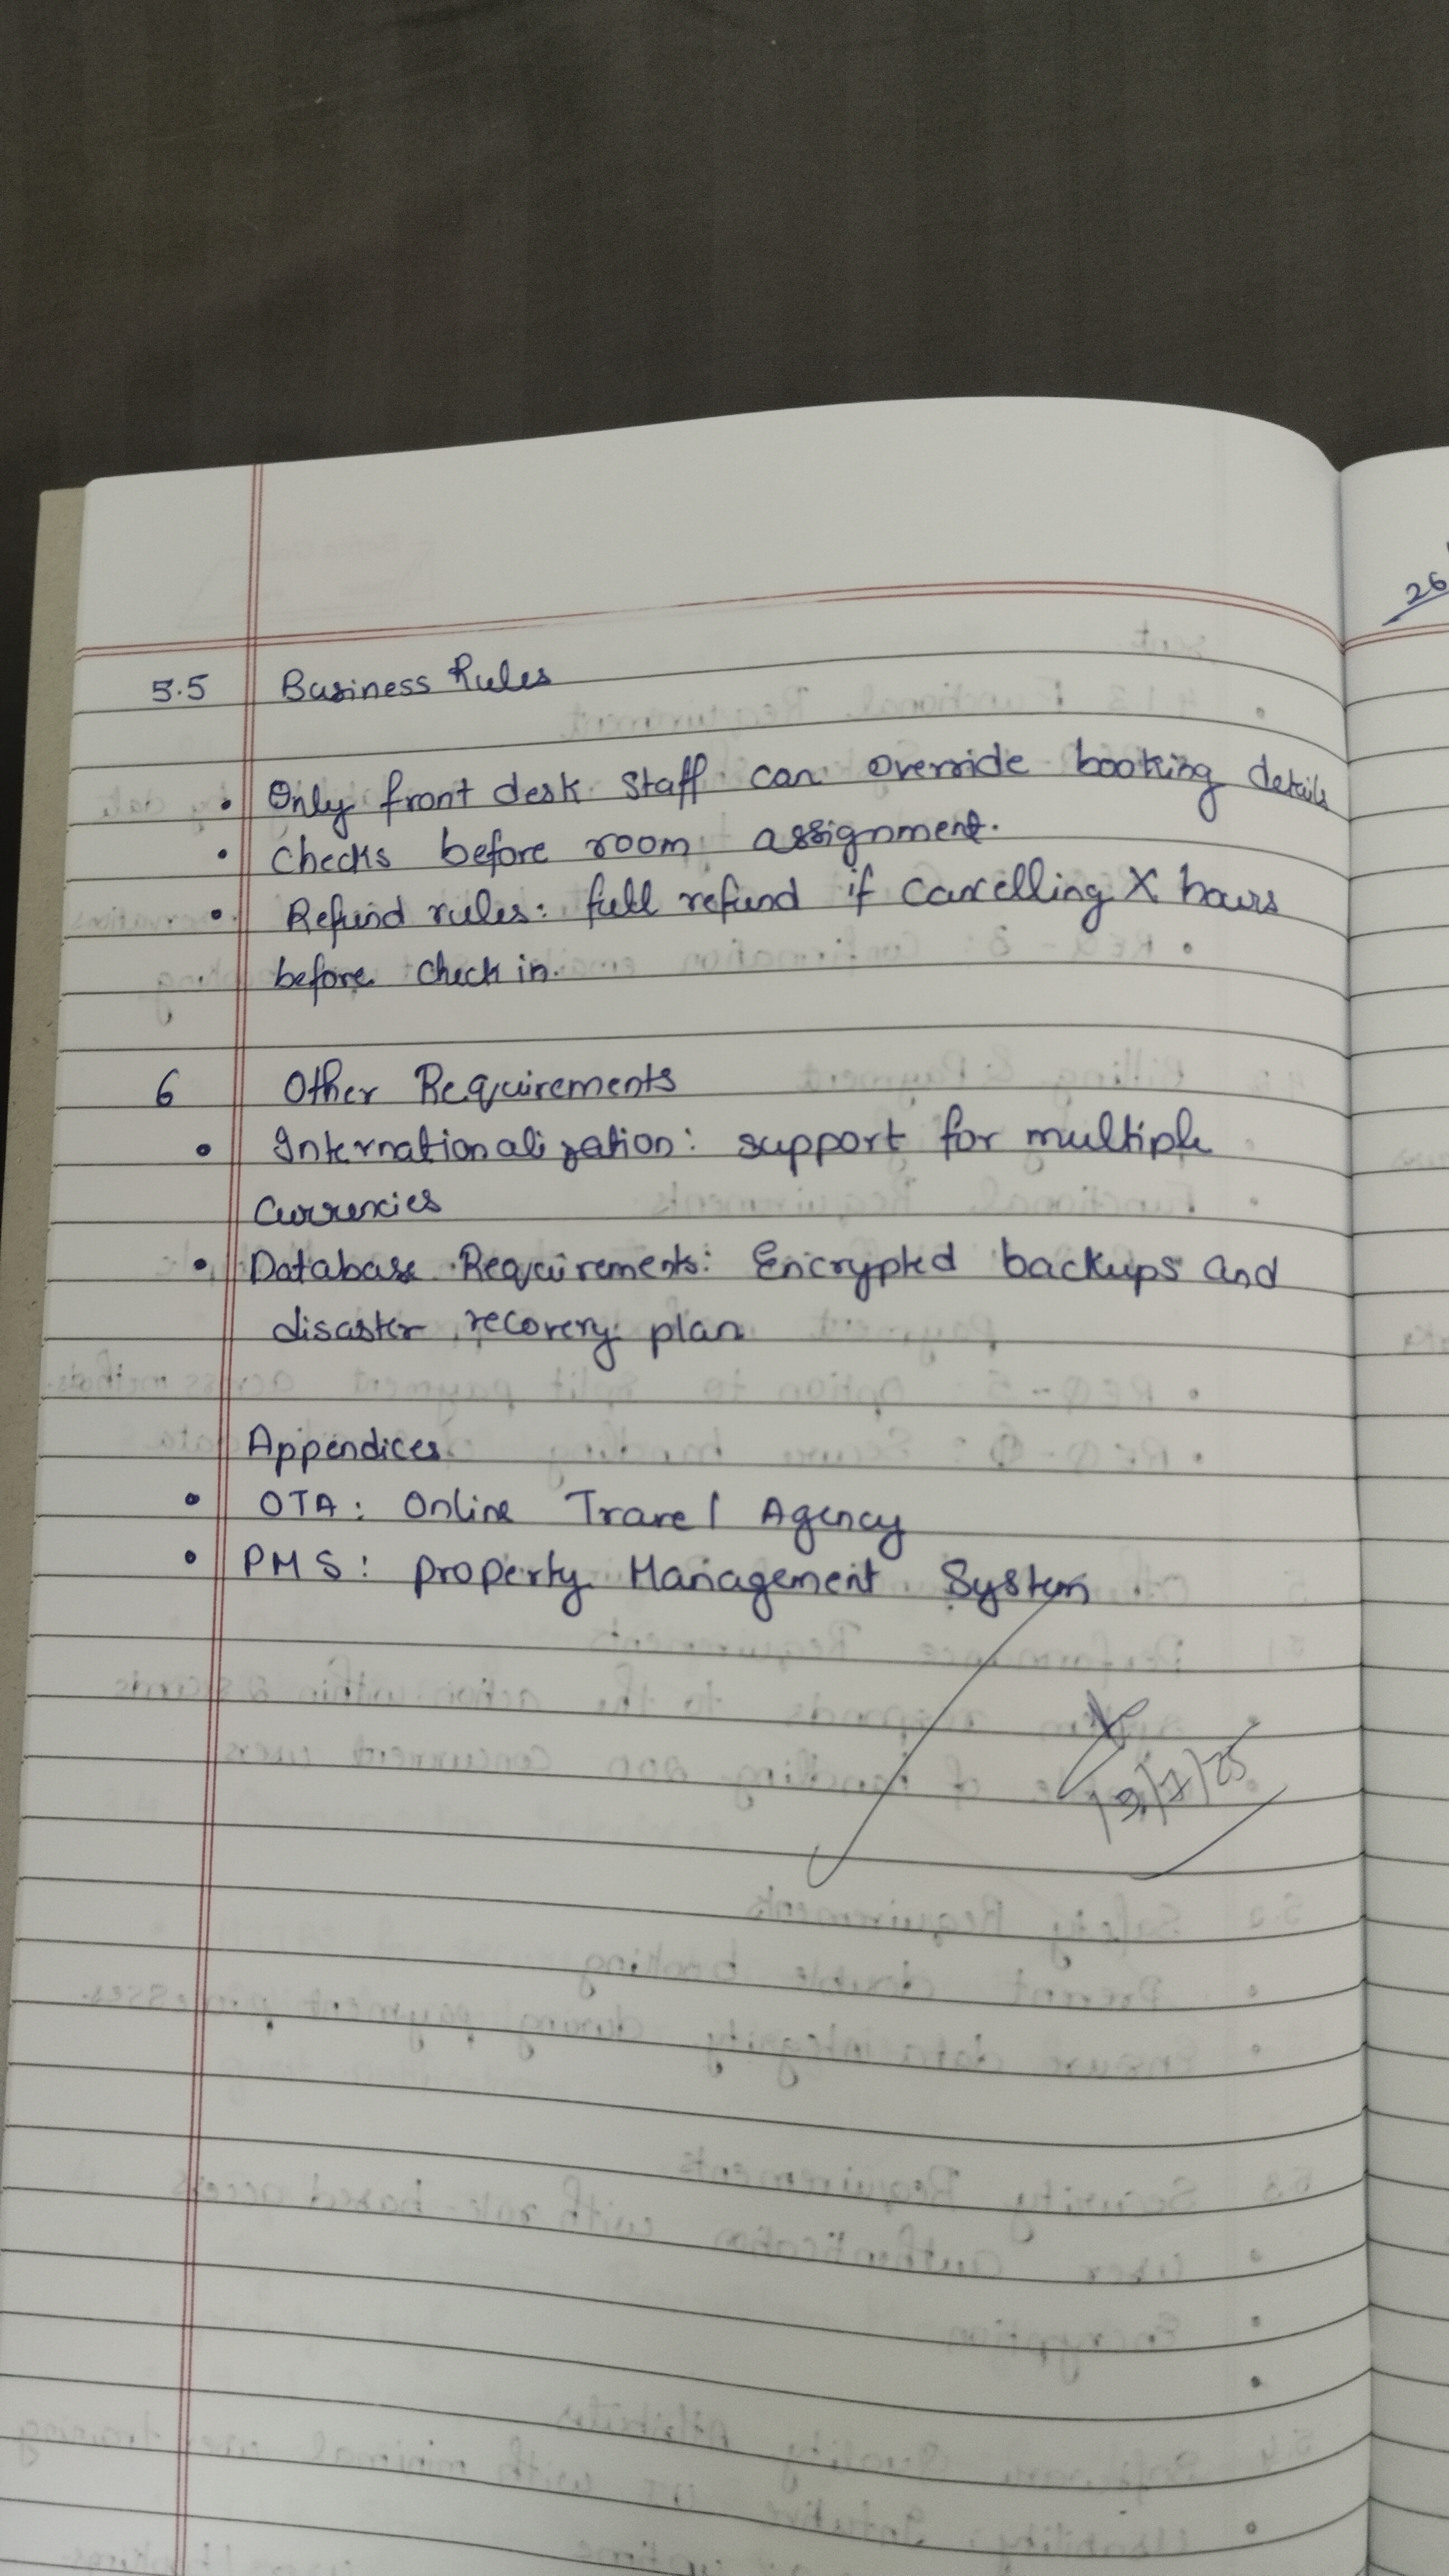 5.5 Business Rules
• Only front desk staff can override booking details
• checks before room assignment.
• Refund rules: full refund if cancelling X hours
before check in.
6 Other Requirements
• Internationalization: support for multiple
Currencies
• Database Requirements: Encrypted backups and
disaster recovery plan
Appendices
• OTA: Online Travel Agency
• PMS: property Management System
26